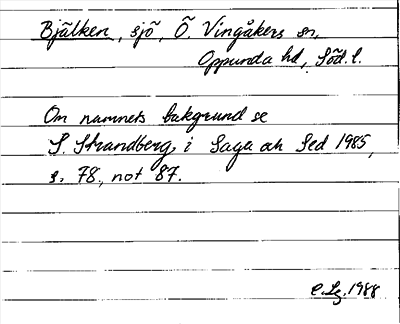 Bjälken, sjö, Ö. Vingåkers sn,
Oppunda hd, Söd. l.
Om namnets bakgrund se
S. Strandberg i Saga och Sed 1985,
s. 78, not 87.
E. Lg. 1988